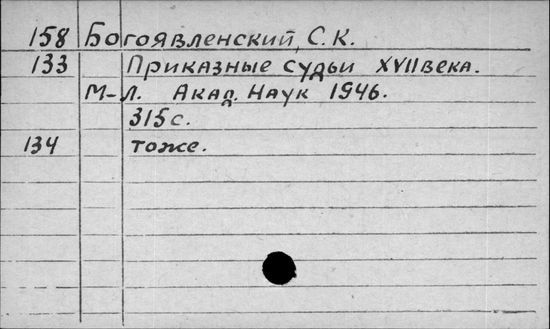 158 Богоявленский, С. К.
133 Приказные судьи XVII века.
М-Л. Акад. Наук 1946.
315 с.
134 тоже.